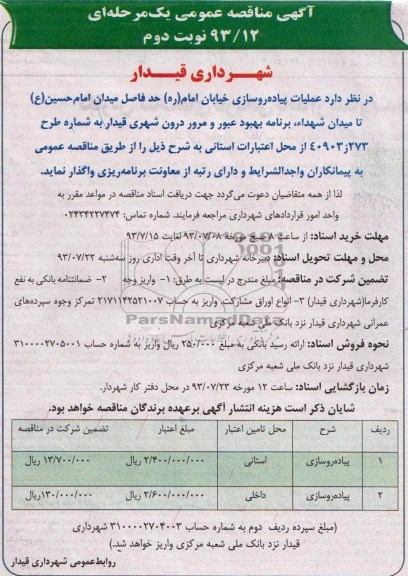 آگهی مناقصه عمومی یک‌مرحله‌ای
۹۳/۱۲ نوبت دوم
شهرداری قیدار
در نظر دارد عملیات پیاده‌روسازی خیابان امام(ره) حد فاصل میدان امام‌حسین(ع)
تا میدان شهداء، برنامه بهبود عبور و مرور درون شهری قیدار به شماره طرح
۴۰۹۰۳ز۲۷۳ از محل اعتبارات استانی به شرح ذیل را از طریق مناقصه عمومی
به پیمانکاران واجدالشرایط و دارای رتبه از معاونت برنامه‌ریزی واگذار نماید.
لذا از همه متقاضیان دعوت می‌گردد جهت دریافت اسناد مناقصه در مواعد مقرر به
واحد امور قراردادهای شهرداری مراجعه فرمایند. شماره تماس: ۰۲۴۳۴۲۲۷۴۷۴
مهلت خرید اسناد: از ساعت ۸ صبح مورخه ۹۳/۰۷/۰۸ لغایت ۹۳/۷/۱۵
محل و مهلت تحویل اسناد: دبیرخانه شهرداری تا آخر وقت اداری روز سه‌شنبه ۹۳/۰۷/۲۲
تضمین شرکت در مناقصه: مبلغ مندرج در لیست به طرق: ۱- واریز وجه ۲- ضمانتنامه بانکی به نفع
کارفرما(شهرداری قیدار) ۳- انواع اوراق مشارکت، واریز به حساب ۲۱۷۱۱۴۲۵۲۱۰۰۷ تمرکز وجوه سپرده‌های
عمرانی شهرداری قیدار نزد بانک ملی شعبه مرکزی
ParsNamadData
نحوه فروش اسناد: ارائه رسید بانکی به مبلغ ۲۵۰/۰۰۰ ریال واریز به شماره حساب ۳۱۰۰۰۰۲۷۰۵۰۰۱
شهرداری قیدار نزد بانک ملی شعبه مرکزی
زمان بازگشایی اسناد: ساعت ۱۲ مورخه ۹۳/۰۷/۲۳ در محل دفتر کار شهردار.
شایان ذکر است هزینه انتشار آگهی برعهده برندگان مناقصه خواهد بود.
ردیف شرح محل تامین اعتبار مبلغ اعتبار تضمین شرکت در مناقصه
۱ پیاده‌روسازی استانی ۲/۴۰۰/۰۰۰/۰۰۰ ریال ۱۳/۷۰۰/۰۰۰ ریال
۲ پیاده‌روسازی داخلی ۲/۶۰۰/۰۰۰/۰۰۰ ریال ۱۳۰/۰۰۰/۰۰۰ریال
(مبلغ سپرده ردیف دوم به شماره حساب ۳۱۰۰۰۰۲۷۰۴۰۰۳ شهرداری
قیدار نزد بانک ملی شعبه مرکزی واریز خواهد شد.)
روابط‌عمومی شهرداری قیدار